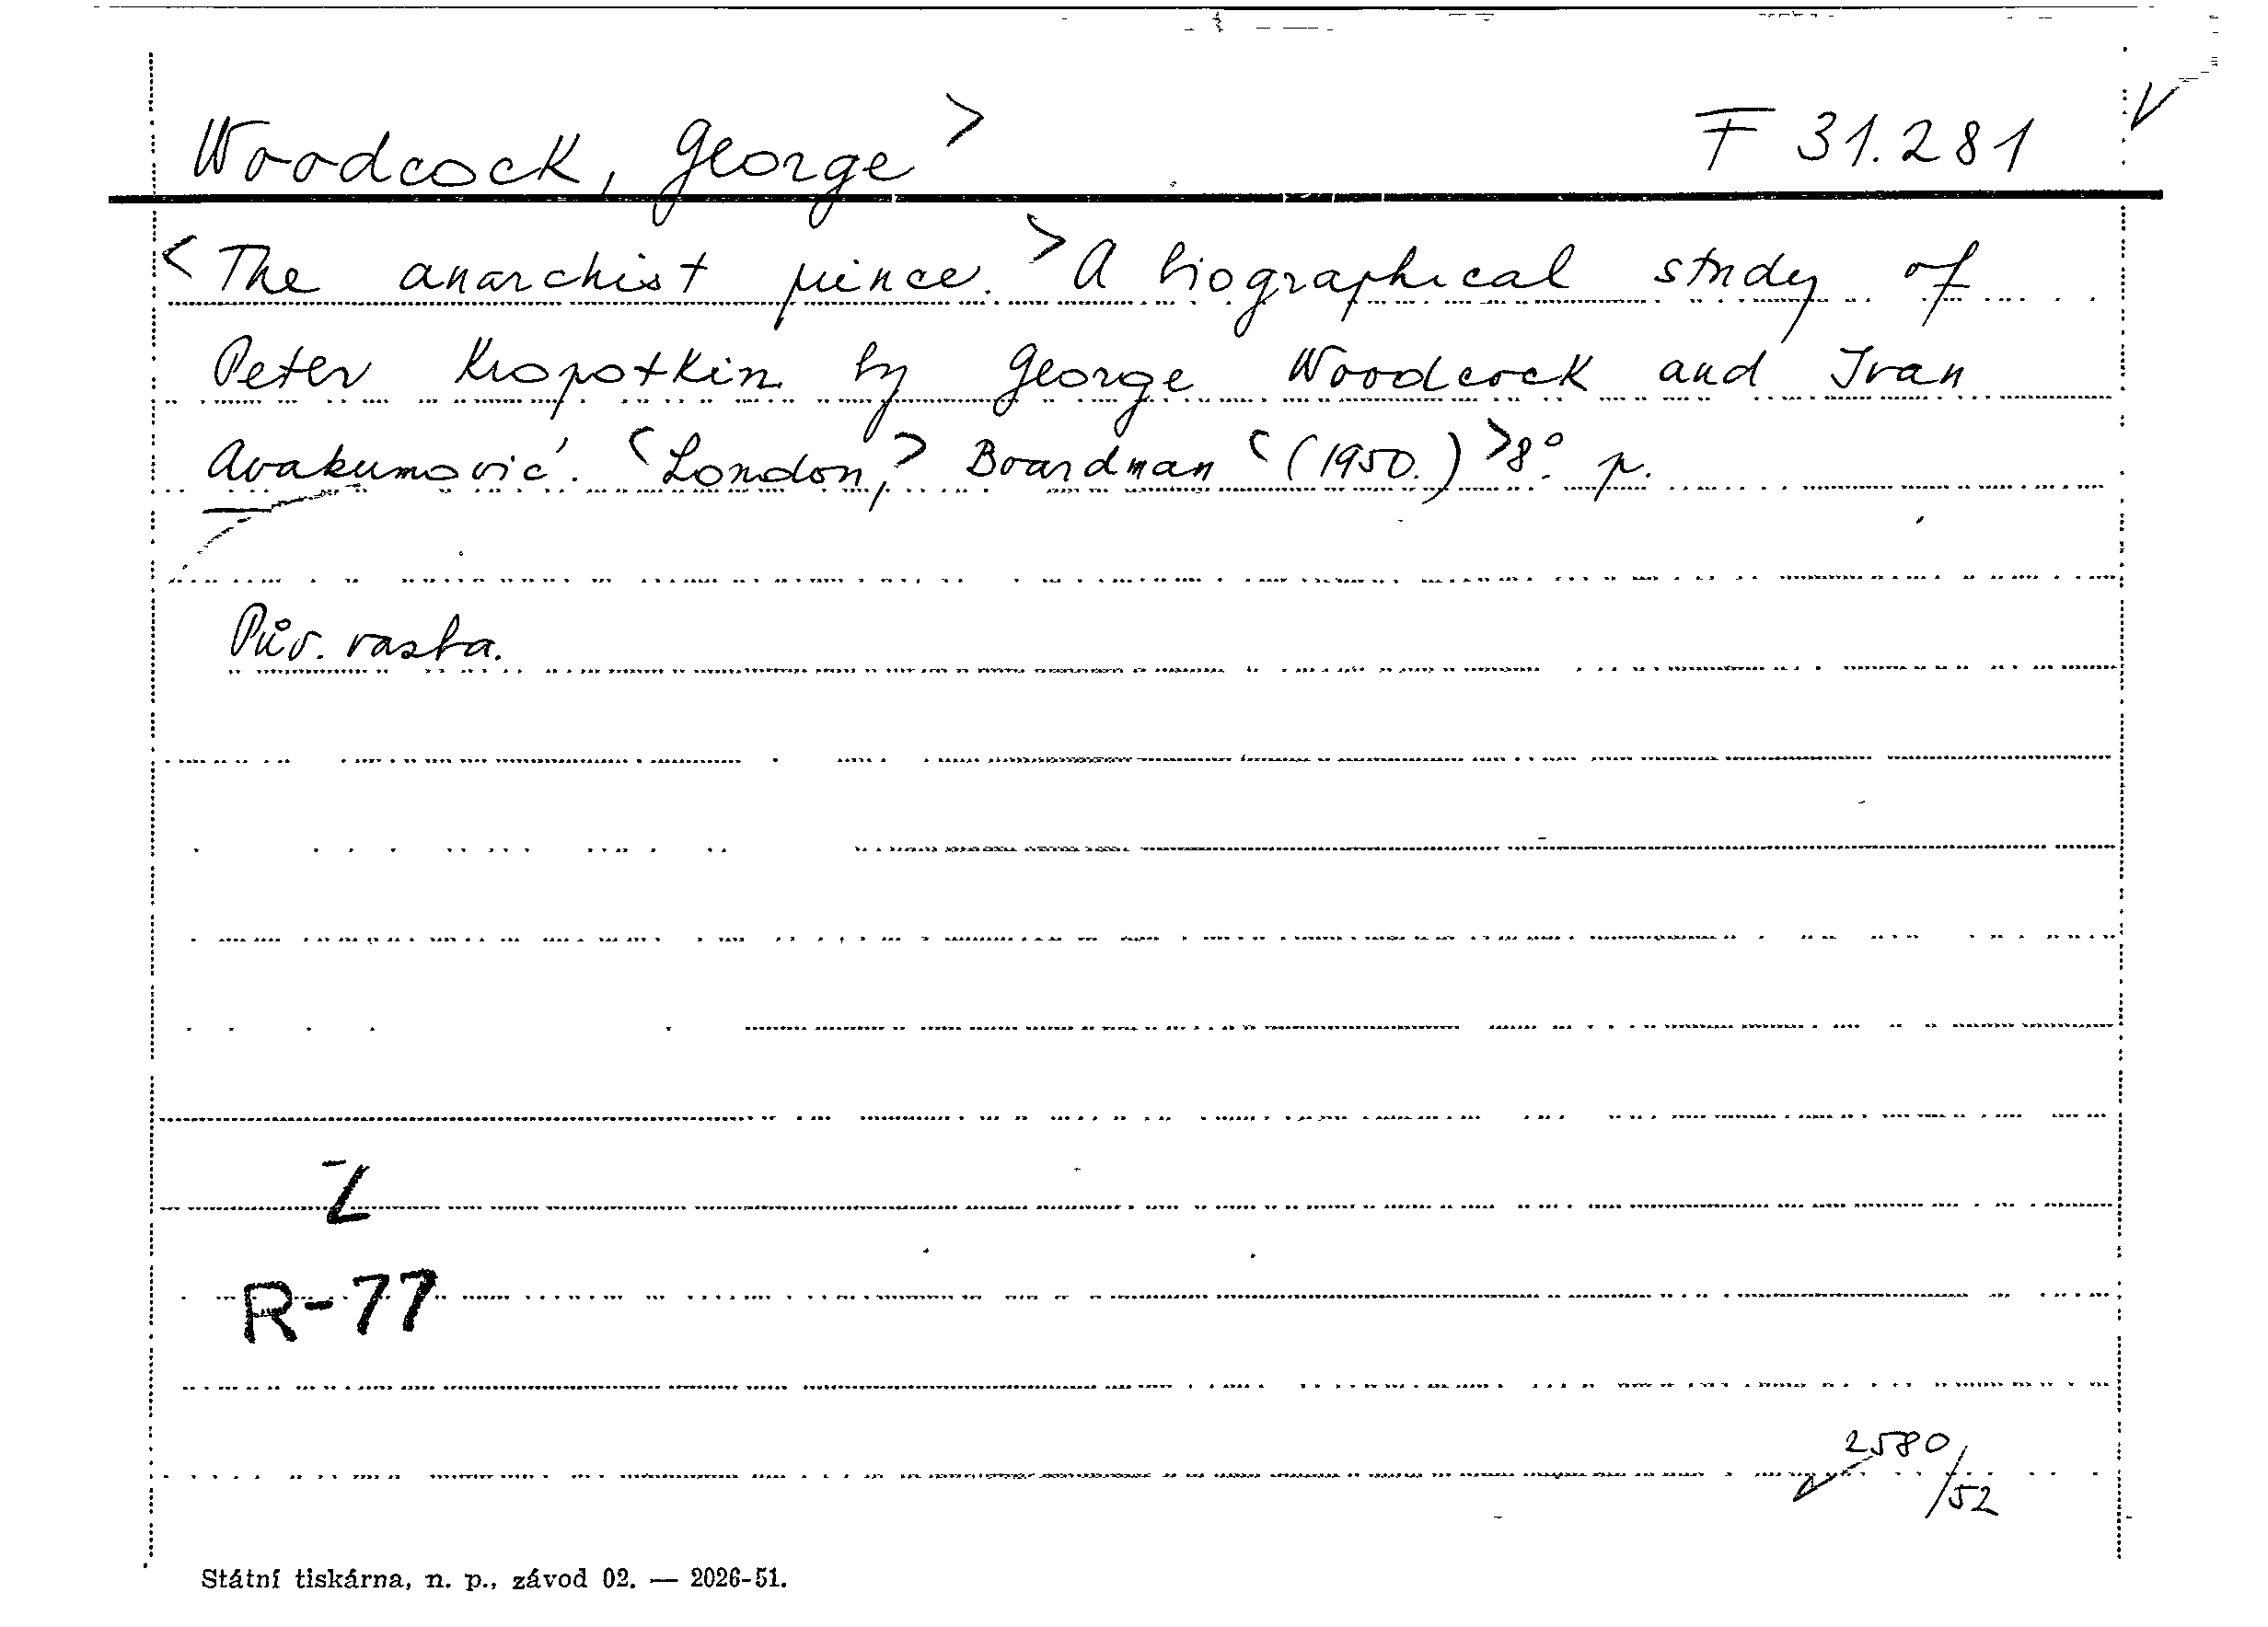 Woodcock, George > F 31.281 V
< The anarchist prince. > A biographical study of
Peter Kropotkin by George Woodcock and Ivan
Avakumović. < London, > Boardman < (1950.) > 8°. p.
Pův. vazba.
Z
R-77
2580/52
Státní tiskárna, n. p., závod 02. — 2026-51.